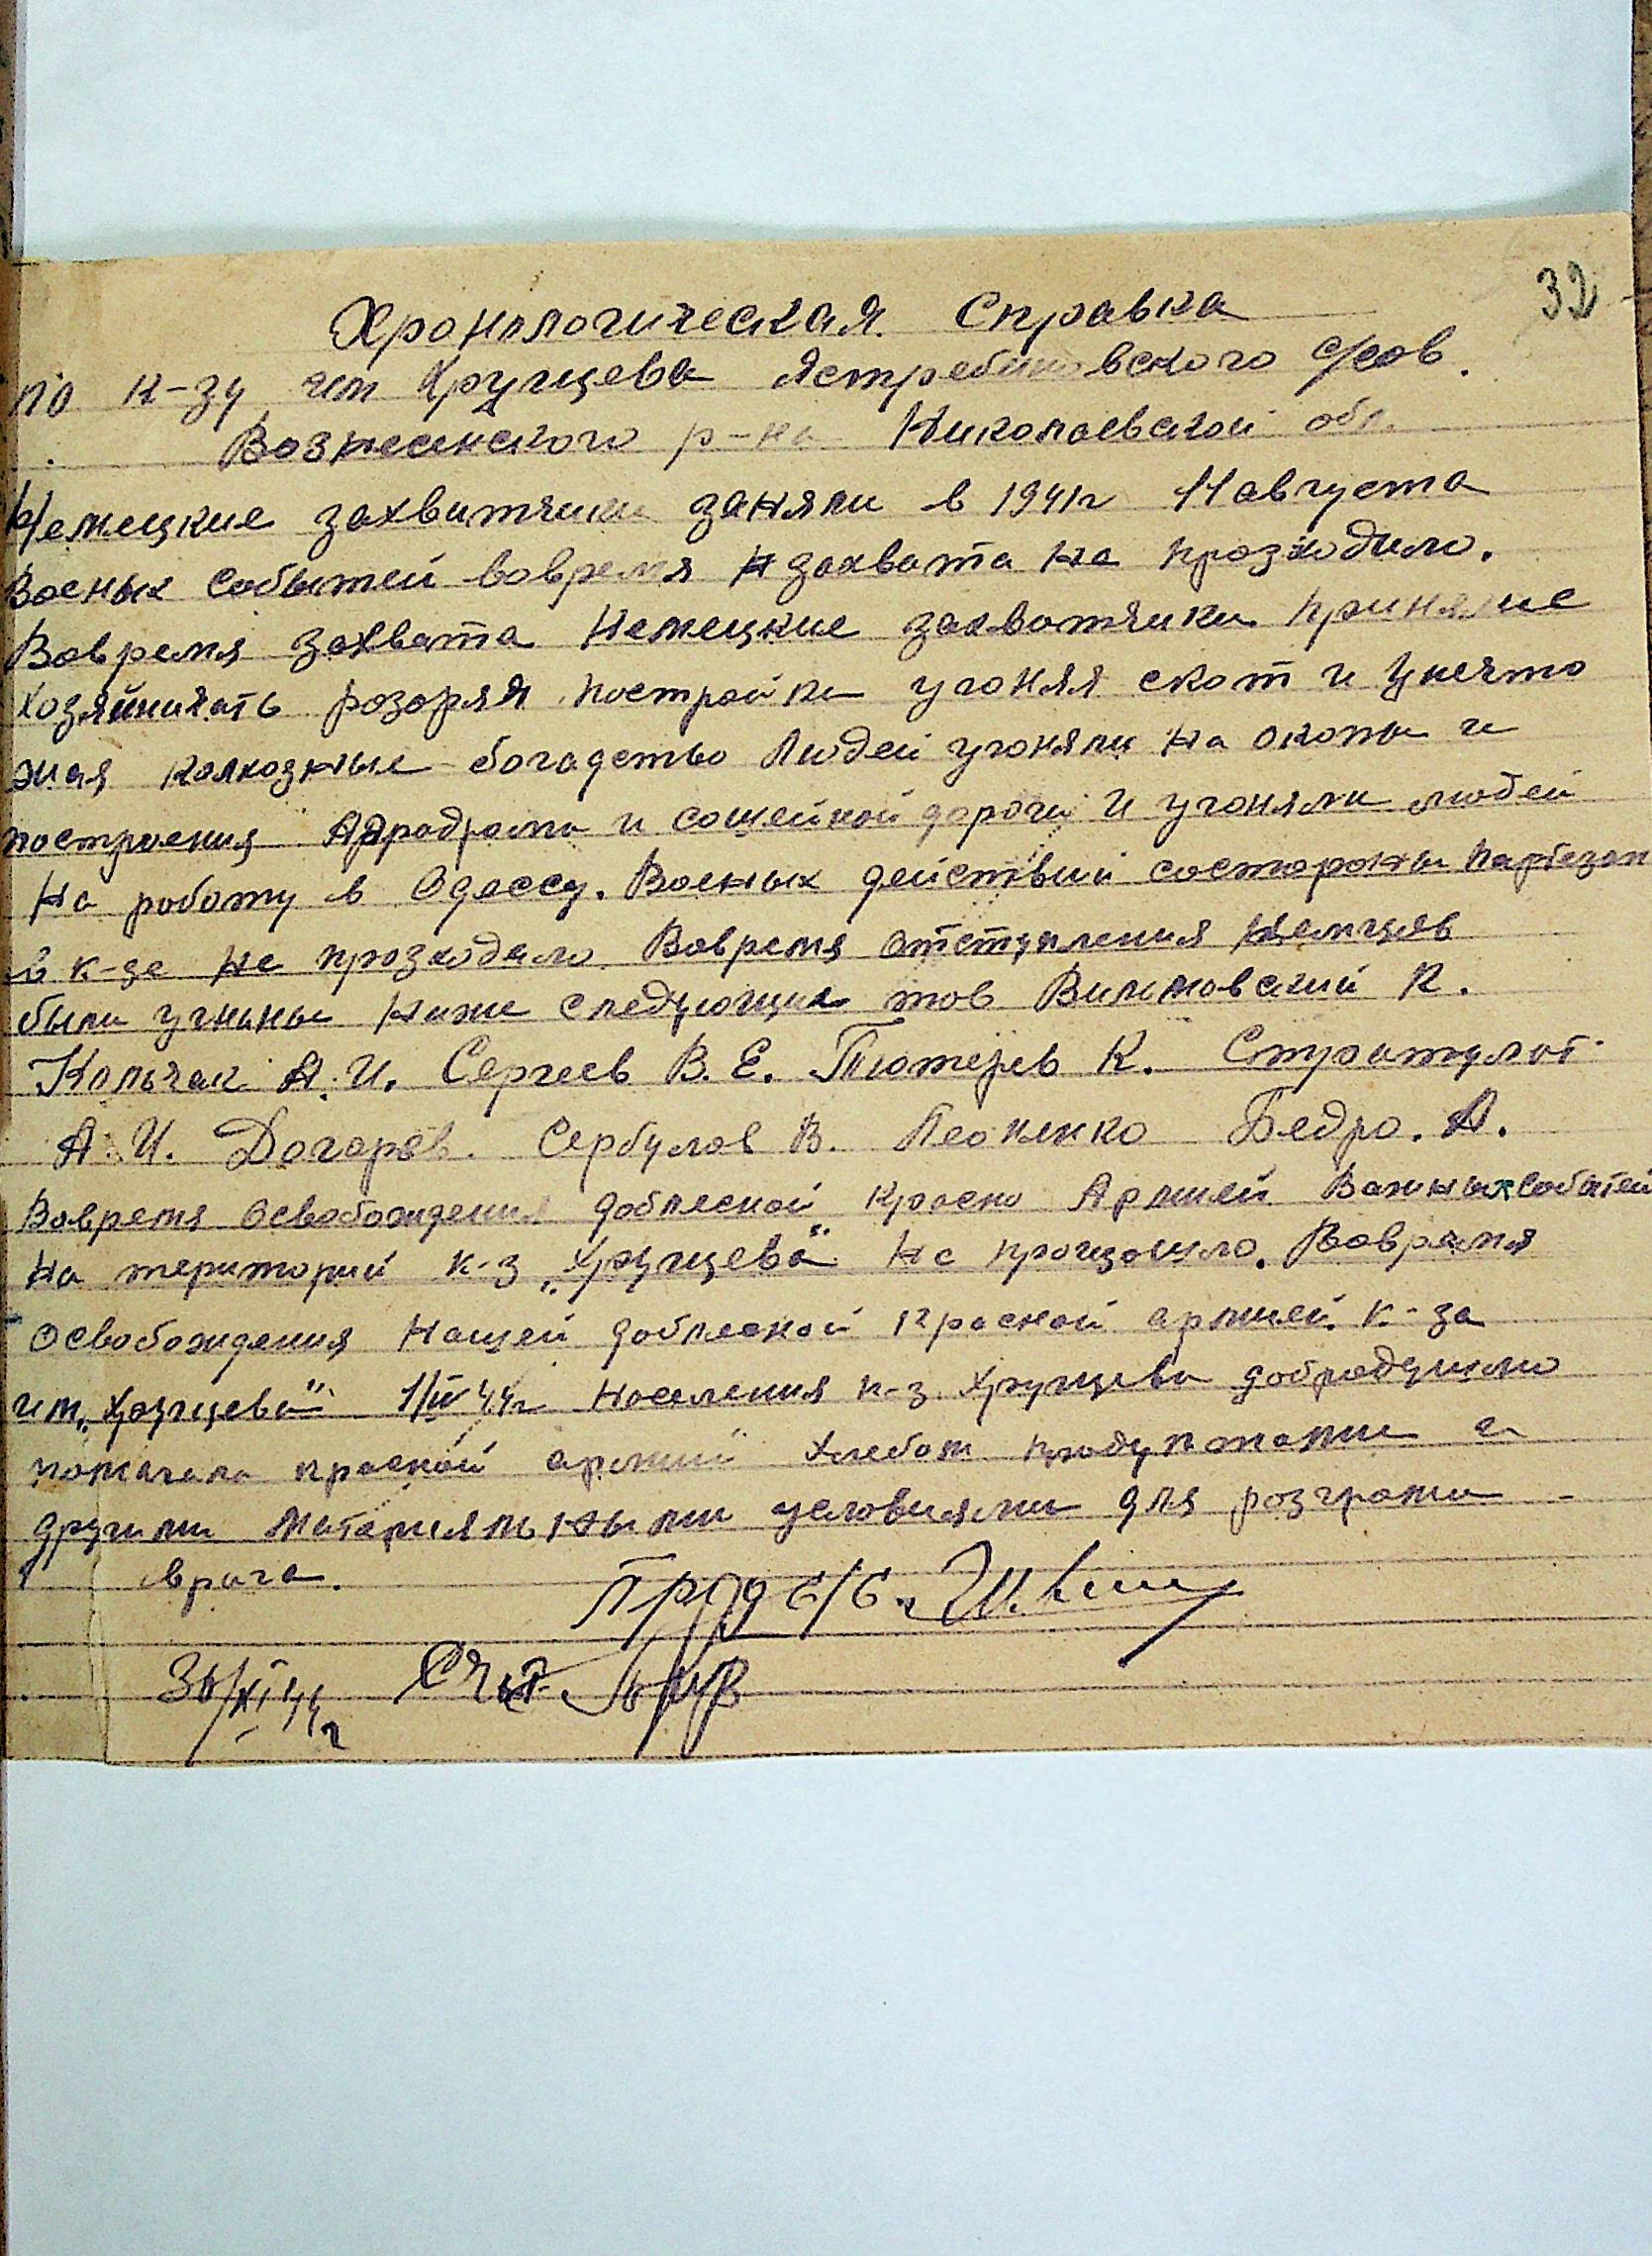 32
Хронологическая Справка
по к-зу им Хрущева Ястребиновского с/сов.
Вознесенского р-на Николаевской обл.
Немецкие захватчики заняли в 1941г 11 августа
Военых событей вовремя захвата не прозходило.
Вовремя захвата Немецкие захватчики принялие
хозяйничать розоряя постройки угоняя скот и Унечто
жая колхозные богадство Людей угоняли на окопы и
построения Аэродрома и сошейной дороги И угоняли людей
На роботу в Одессу. Военых действий состороны партезан
в к-зе не прозходило. Вовремя отступления Немцев
были угнаны Ниже следующие тов Вильновский К.
Кольчак А. И. Сергеев В. Е. Тютерев К.
А. И. Догарев. Сербулов В. Леоненко Бедро. А.
Вовремя Освобождения доблесной красно Армией Важных событей
На територий к-з „Хрущева" не прощошло. Вовремя
освобождения Нашей доблесной красной армией к-за
им „Хрущева" 1/IV 44г Население к-з. Хрущева добродушно
помагала красной армии хлебом продуктами и
другими материяльными условиями для розгрома
врага.
Пред с/с.
30/XI 44г Счет.